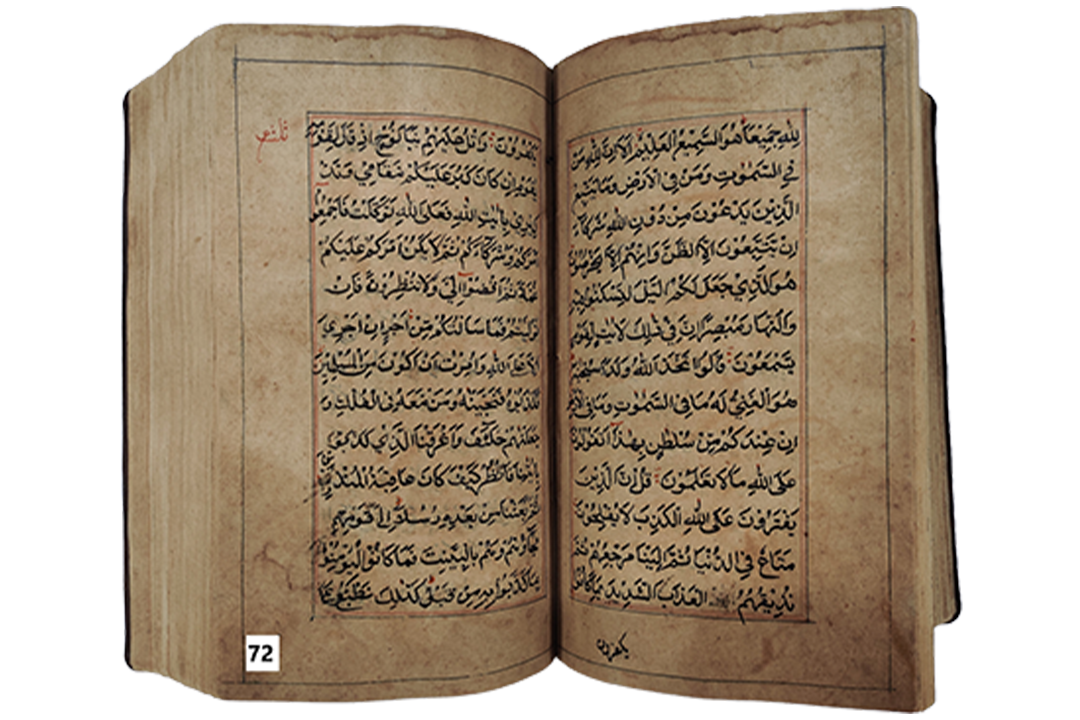 لله جميعا هو السميع العليم الا ان لله من
في السموت ومن في الارض وما يتبع
الذين يدعون من دون الله شركاء
ان يتبعون الا الظن وان هم الا يخرصون
هو الذي جعل لكم اليل لتسكنوا فيه
والنهار مبصرا ان في ذلك لايت لقوم
يسمعون قالوا اتخذ الله ولدا سبحنه
هو الغني له ما في السموت وما في الارض
ان عندكم من سلطن بهذا اتقولون
على الله ما لا تعلمون قل ان الذين
يفترون على الله الكذب لا يفلحون
متاع في الدنيا ثم الينا مرجعهم ثم
نذيقهم العذاب الشديد بما كانوا
يكفرون
ثلثة
يكفرون واتل عليهم نبا نوح اذ قال لقومه
يقوم ان كان كبر عليكم مقامي وتذ
كيري بايت الله فعلى الله توكلت فاجمعوا
امركم وشركاءكم ثم لا يكن امركم عليكم
غمة ثم اقضوا الي ولا تنظرون فان
توليتم فما سالتكم من اجر ان اجري
الا على الله وامرت ان اكون من المسلمين
فكذبوه فنجينه ومن معه في الفلك و
جعلنهم خلئف واغرقنا الذين كذبوا
بايتنا فانظر كيف كان عاقبة المنذرين
ثم بعثنا من بعده رسلا الى قومهم
فجاؤهم بالبينت فما كانوا ليؤمنوا
بما كذبوا به من قبل كذلك نطبع على
72